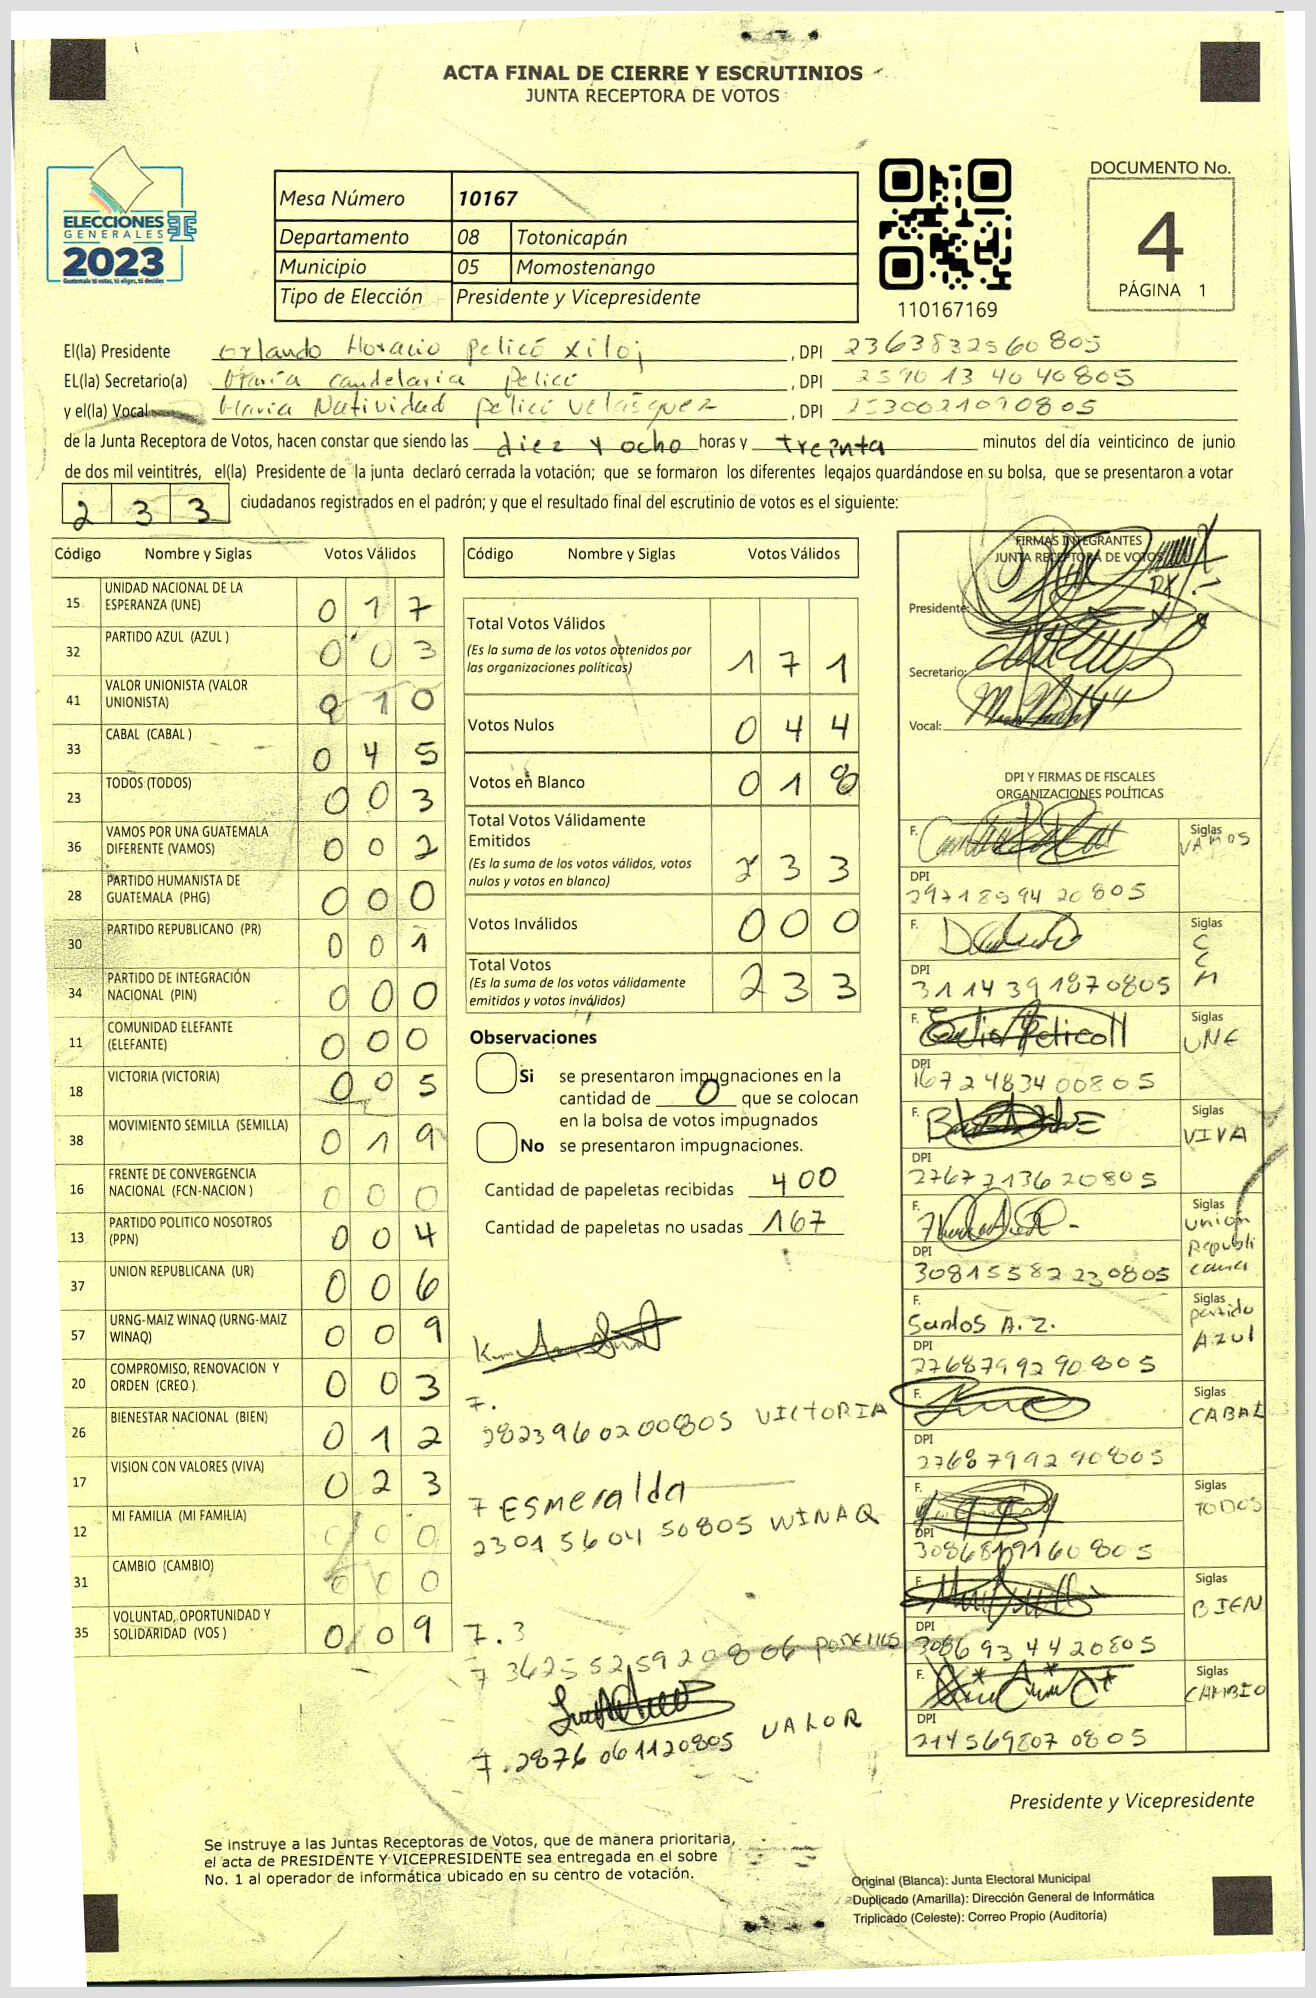 ACTA FINAL DE CIERRE Y ESCRUTINIOS
JUNTA RECEPTORA DE VOTOS
ELECCIONES
GENERALES
2023
Guatemala tú votas, tú eliges, tú decides
Mesa Número 10167
Departamento 08 Totonicapán
Municipio 05 Momostenango
Tipo de Elección Presidente y Vicepresidente
110167169
DOCUMENTO No.
4
PÁGINA 1
El(la) Presidente Orlando Horacio Pelicó Xiloj, DPI 2363832560805
EL(la) Secretario(a) María Candelaria Pelicó, DPI 2590134040805
y el(la) Vocal María Natividad Pelicó Velásquez, DPI 2530021090805
de la Junta Receptora de Votos, hacen constar que siendo las diez y ocho horas y treinta minutos del día veinticinco de junio
de dos mil veintitrés, el(la) Presidente de la junta declaró cerrada la votación; que se formaron los diferentes legajos guardándose en su bolsa, que se presentaron a votar
233 ciudadanos registrados en el padrón; y que el resultado final del escrutinio de votos es el siguiente:
Código Nombre y Siglas Votos Válidos
15 UNIDAD NACIONAL DE LA ESPERANZA (UNE) 017
32 PARTIDO AZUL (AZUL ) 003
41 VALOR UNIONISTA (VALOR UNIONISTA) 010
33 CABAL (CABAL ) 045
23 TODOS (TODOS) 003
36 VAMOS POR UNA GUATEMALA DIFERENTE (VAMOS) 002
28 PARTIDO HUMANISTA DE GUATEMALA (PHG) 000
30 PARTIDO REPUBLICANO (PR) 001
34 PARTIDO DE INTEGRACIÓN NACIONAL (PIN) 000
11 COMUNIDAD ELEFANTE (ELEFANTE) 000
18 VICTORIA (VICTORIA) 005
38 MOVIMIENTO SEMILLA (SEMILLA) 019
16 FRENTE DE CONVERGENCIA NACIONAL (FCN-NACION ) 000
13 PARTIDO POLITICO NOSOTROS (PPN) 004
37 UNION REPUBLICANA (UR) 006
57 URNG-MAIZ WINAQ (URNG-MAIZ WINAQ) 009
20 COMPROMISO, RENOVACION Y ORDEN (CREO ) 003
26 BIENESTAR NACIONAL (BIEN) 012
17 VISION CON VALORES (VIVA) 023
12 MI FAMILIA (MI FAMILIA) 000
31 CAMBIO (CAMBIO) 000
35 VOLUNTAD, OPORTUNIDAD Y SOLIDARIDAD (VOS ) 009
Código Nombre y Siglas Votos Válidos
Total Votos Válidos 171
(Es la suma de los votos obtenidos por
las organizaciones políticas)
Votos Nulos 044
Votos en Blanco 018
Total Votos Válidamente
Emitidos 233
(Es la suma de los votos válidos, votos
nulos y votos en blanco)
Votos Inválidos 000
Total Votos 233
(Es la suma de los votos válidamente
emitidos y votos inválidos)
Observaciones
Si se presentaron impugnaciones en la
cantidad de 0 que se colocan
en la bolsa de votos impugnados
No se presentaron impugnaciones.
Cantidad de papeletas recibidas 400
Cantidad de papeletas no usadas 167
7.
2823960200805 VICTORIA
7 Esmeralda
2301560450805 WINAQ
7.3
7 3625525920806 PODEMOS
7.2876061120805 VALOR
FIRMAS INTEGRANTES
JUNTA RECEPTORA DE VOTOS
Presidente:
Secretario:
Vocal:
DPI Y FIRMAS DE FISCALES
ORGANIZACIONES POLÍTICAS
F. Siglas VAMOS
DPI 2971859420805
F. Siglas
DPI 3114391870805
F. Siglas UNE
DPI 1672483400805
F. Siglas VIVA
DPI 2767213620805
F. Siglas Unión Republicana
DPI 3081558220805
F. Santos A. Z. Siglas partido AZUL
DPI 2768799290805
F. Siglas CABAL
DPI 2768799290805
F. Siglas TODOS
DPI 3086819160805
F. Siglas BIEN
DPI 3086934420805
F. Siglas CAMBIO
DPI 2145698070805
Presidente y Vicepresidente
Se instruye a las Juntas Receptoras de Votos, que de manera prioritaria,
el acta de PRESIDENTE Y VICEPRESIDENTE sea entregada en el sobre
No. 1 al operador de informática ubicado en su centro de votación.
Original (Blanca): Junta Electoral Municipal
Duplicado (Amarilla): Dirección General de Informática
Triplicado (Celeste): Correo Propio (Auditoría)